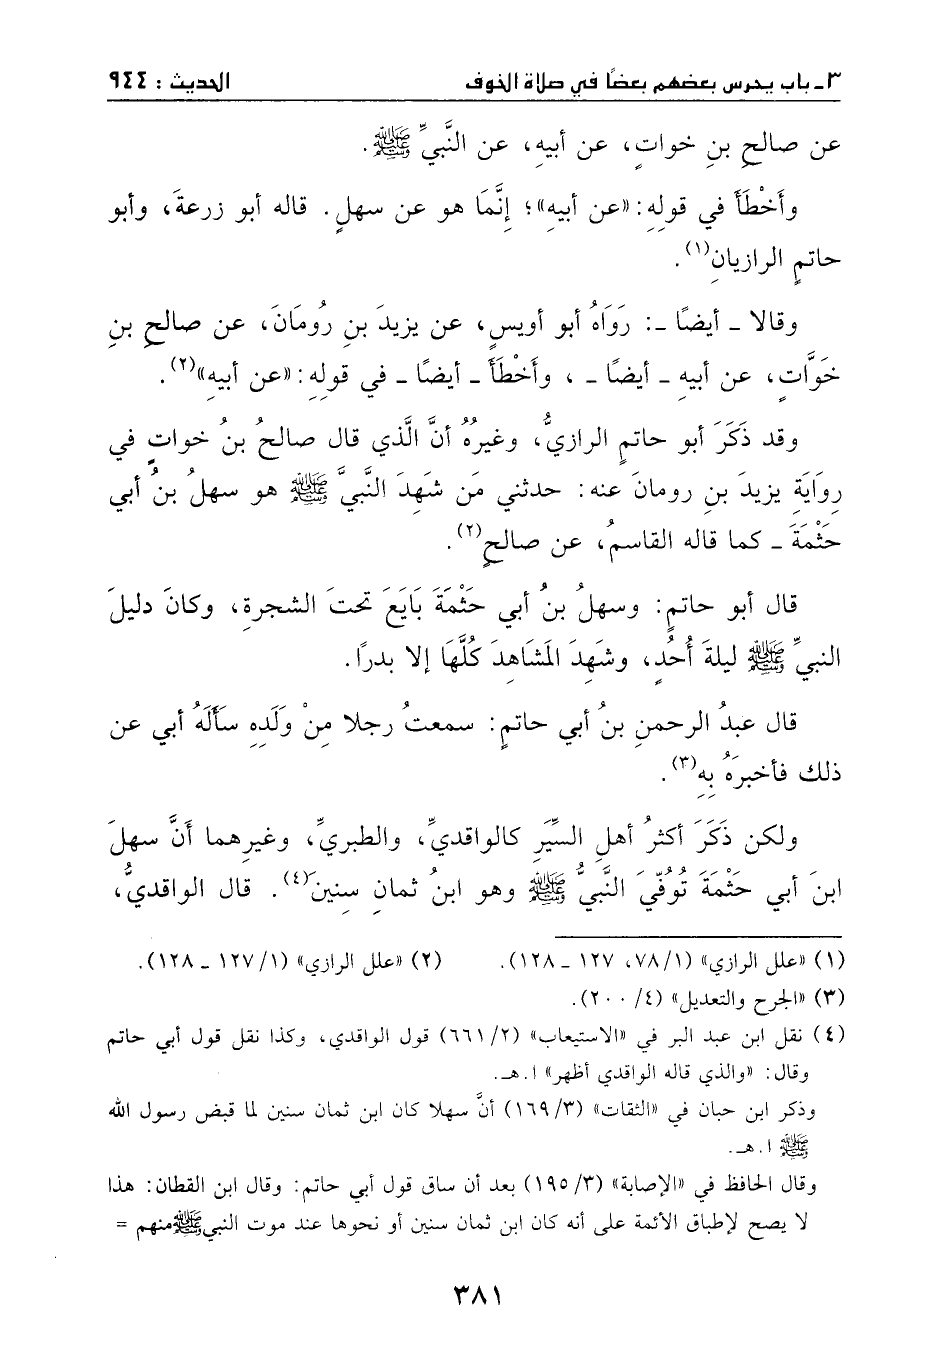 ٣ ـ باب يحرس بعضهم بعضًا في صلاة الخوف الحديث : ٩٤٤
عن صالحِ بنِ خواتٍ، عن أبيهِ، عن النَّبيِّ ﷺ.
وأَخْطَأَ في قولِهِ: «عن أبيهِ»؛ إنَّمَا هو عن سهلٍ. قاله أبو زرعةَ، وأبو
حاتمٍ الرازيانِ(١).
وقالا ـ أيضًا ـ: رَوَاهُ أبو أويسٍ، عن يزيدَ بنِ رُومَانَ، عن صالحِ بنِ
خَوَّاتٍ، عن أبيهِ ـ أيضًا ـ ، وأَخْطَأَ ـ أيضًا ـ في قولِهِ: «عن أبيهِ»(٢).
وقد ذَكَرَ أبو حاتمٍ الرازيُّ، وغيرُهُ أنَّ الَّذي قال صالحُ بنُ خواتٍ في
رِوَايَةِ يزيدَ بنِ رومانَ عنه: حدثني مَن شَهِدَ النَّبيَّ ﷺ هو سهلُ بنُ أبي
حَثْمَةَ ـ كما قاله القاسمُ، عن صالحٍ(٢).
قال أبو حاتمٍ: وسهلُ بنُ أبي حَثْمَةَ بَايَعَ تحتَ الشجرةِ، وكانَ دليلَ
النبيِّ ﷺ ليلةَ أُحُدٍ، وشَهِدَ المَشَاهِدَ كُلَّهَا إلا بدرًا.
قال عبدُ الرحمنِ بنُ أبي حاتمٍ: سمعتُ رجلا مِنْ وَلَدِهِ سَأَلَهُ أبي عن
ذلك فأخبرَهُ بِهِ(٣).
ولكن ذَكَرَ أكثرُ أهلِ السِّيَرِ كالواقديِّ، والطبريِّ، وغيرِهما أنَّ سهلَ
ابنَ أبي حَثْمَةَ تُوُفِّيَ النَّبيُّ ﷺ وهو ابنُ ثمانِ سِنِينَ(٤). قال الواقديُّ،
(١) «علل الرازي» (٧٨/١، ١٢٧ ـ ١٢٨). (٢) «علل الرازي» (١٢٧/١ ـ ١٢٨).
(٣) «الجرح والتعديل» (٢٠٠/٤).
(٤) نقل ابن عبد البر في «الاستيعاب» (٦٦١/٢) قول الواقدي، وكذا نقل قول أبي حاتم
وقال: «والذي قاله الواقدي أظهر» ا.هـ.
وذكر ابن حبان في «الثقات» (١٦٩/٣) أنَّ سهلا كان ابن ثمان سنين لما قبض رسول الله
ﷺ ا.هـ.
وقال الحافظ في «الإصابة» (١٩٥/٣) بعد أن ساق قول أبي حاتم: وقال ابن القطان: هذا
لا يصح لإطباق الأئمة على أنه كان ابن ثمان سنين أو نحوها عند موت النبي ﷺ منهم =
٣٨١